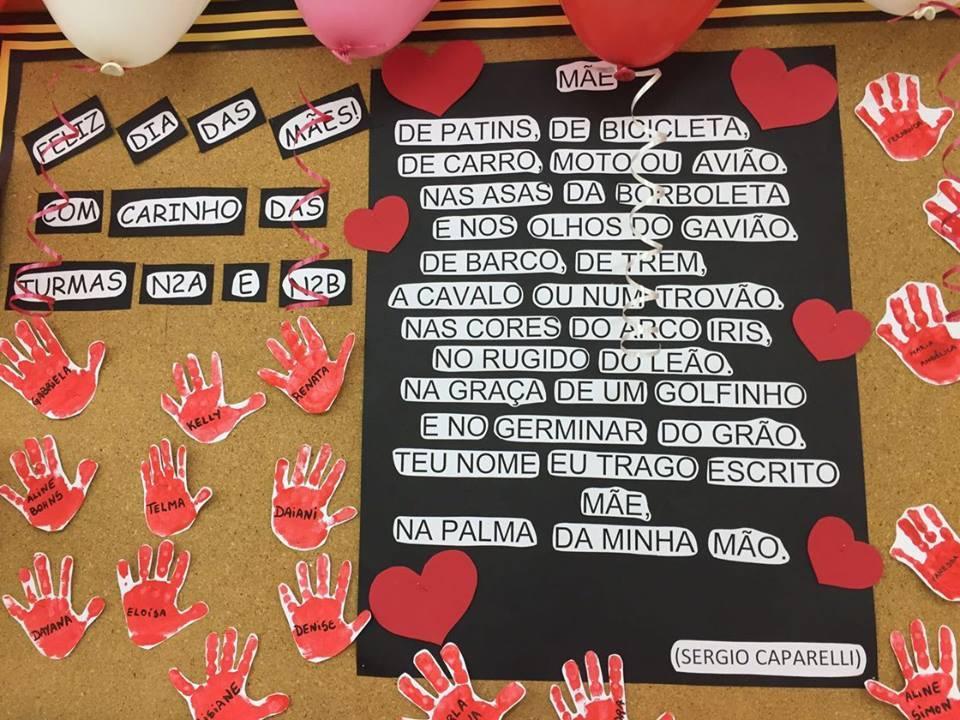 FELIZ DIA DAS MÃES!
COM CARINHO DAS
TURMAS N2A E N2B
MÃE
DE PATINS, DE BICICLETA,
DE CARRO, MOTO OU AVIÃO.
NAS ASAS DA BORBOLETA
E NOS OLHOS DO GAVIÃO.
DE BARCO, DE TREM,
A CAVALO OU NUM TROVÃO.
NAS CORES DO ARCO IRIS,
NO RUGIDO DO LEÃO.
NA GRAÇA DE UM GOLFINHO
E NO GERMINAR DO GRÃO.
TEU NOME EU TRAGO ESCRITO
MÃE,
NA PALMA DA MINHA MÃO.
(SERGIO CAPARELLI)
GABRIELA
KELLY
RENATA
ALINE
BOHNS
TELMA
DAIANI
DAYANA
ELOÍSA
DENISE
MARIA
ANGÉLICA
ALINE
SIMON